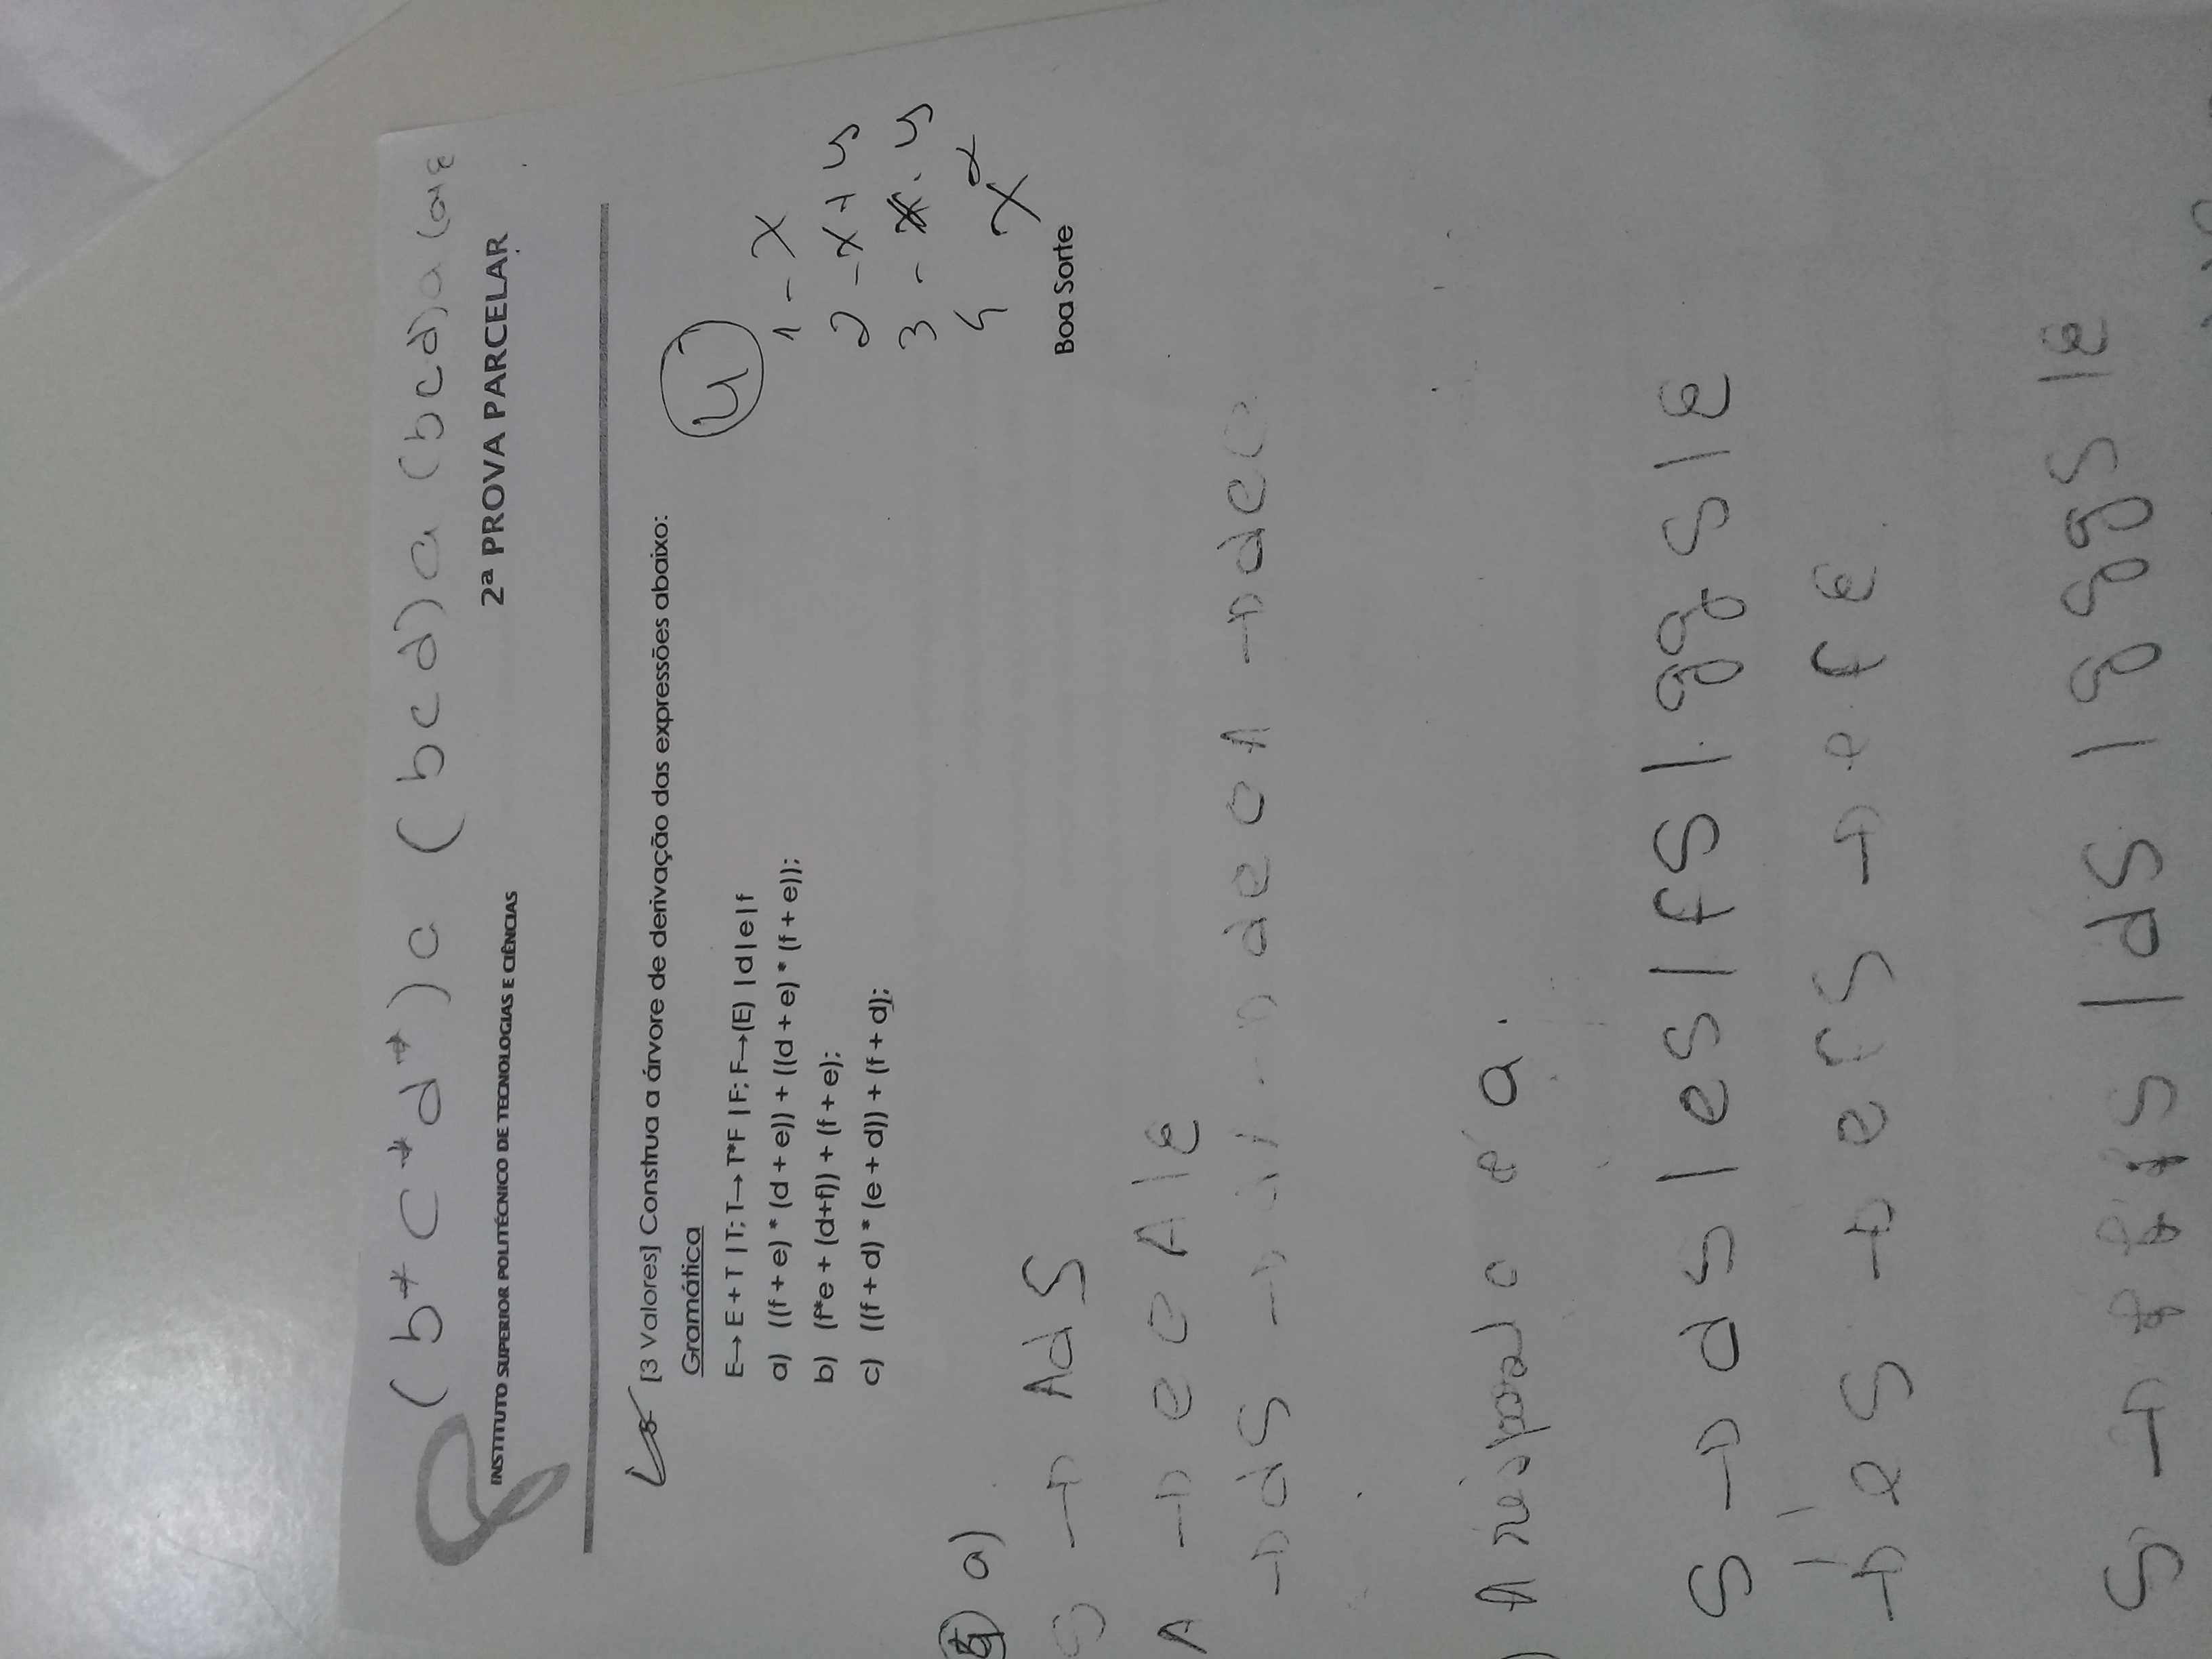 (b* c* d*) a (bcd) a (bcd) a
INSTITUTO SUPERIOR POLITÉCNICO DE TECNOLOGIAS E CIÊNCIAS
2ª PROVA PARCELAR
5- [3 Valores] Construa a árvore de derivação das expressões abaixo:
Gramática
E→ E + T | T; T→ T*F | F; F→(E) |d|e|f
a) ((f + e) * (d + e)) + ((d + e) * (f + e));
b) (f*e + (d+f)) + (f + e);
c) ((f + d) * (e + d)) + (f + d);
4
1 - x
2 - x + y
3 - x . y
4 x
Boa Sorte
a)
S → AdS
A → e e A | ε
→ dS → → d e e A → d e e
A é a.
S → dS | eS | fS | ggS | ε
→ eS → efS → e f ε
S → S | dS | gggS | ε